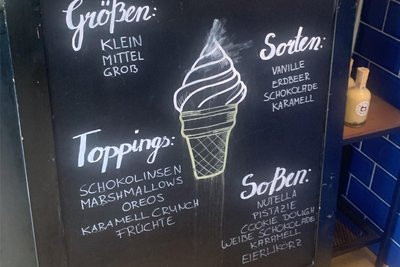 Größen:
KLEIN
MITTEL
GROß
Sorten:
VANILLE
ERDBEER
SCHOKOLADE
KARAMELL
Toppings:
SCHOKOLINSEN
MARSHMALLOWS
OREOS
KARAMELL CRUNCH
FRÜCHTE
Soßen:
NUTELLA
PISTAZIE
COOKIE DOUGH
WEIßE SCHOKOLADE
KARAMELL
EIERLIKÖR